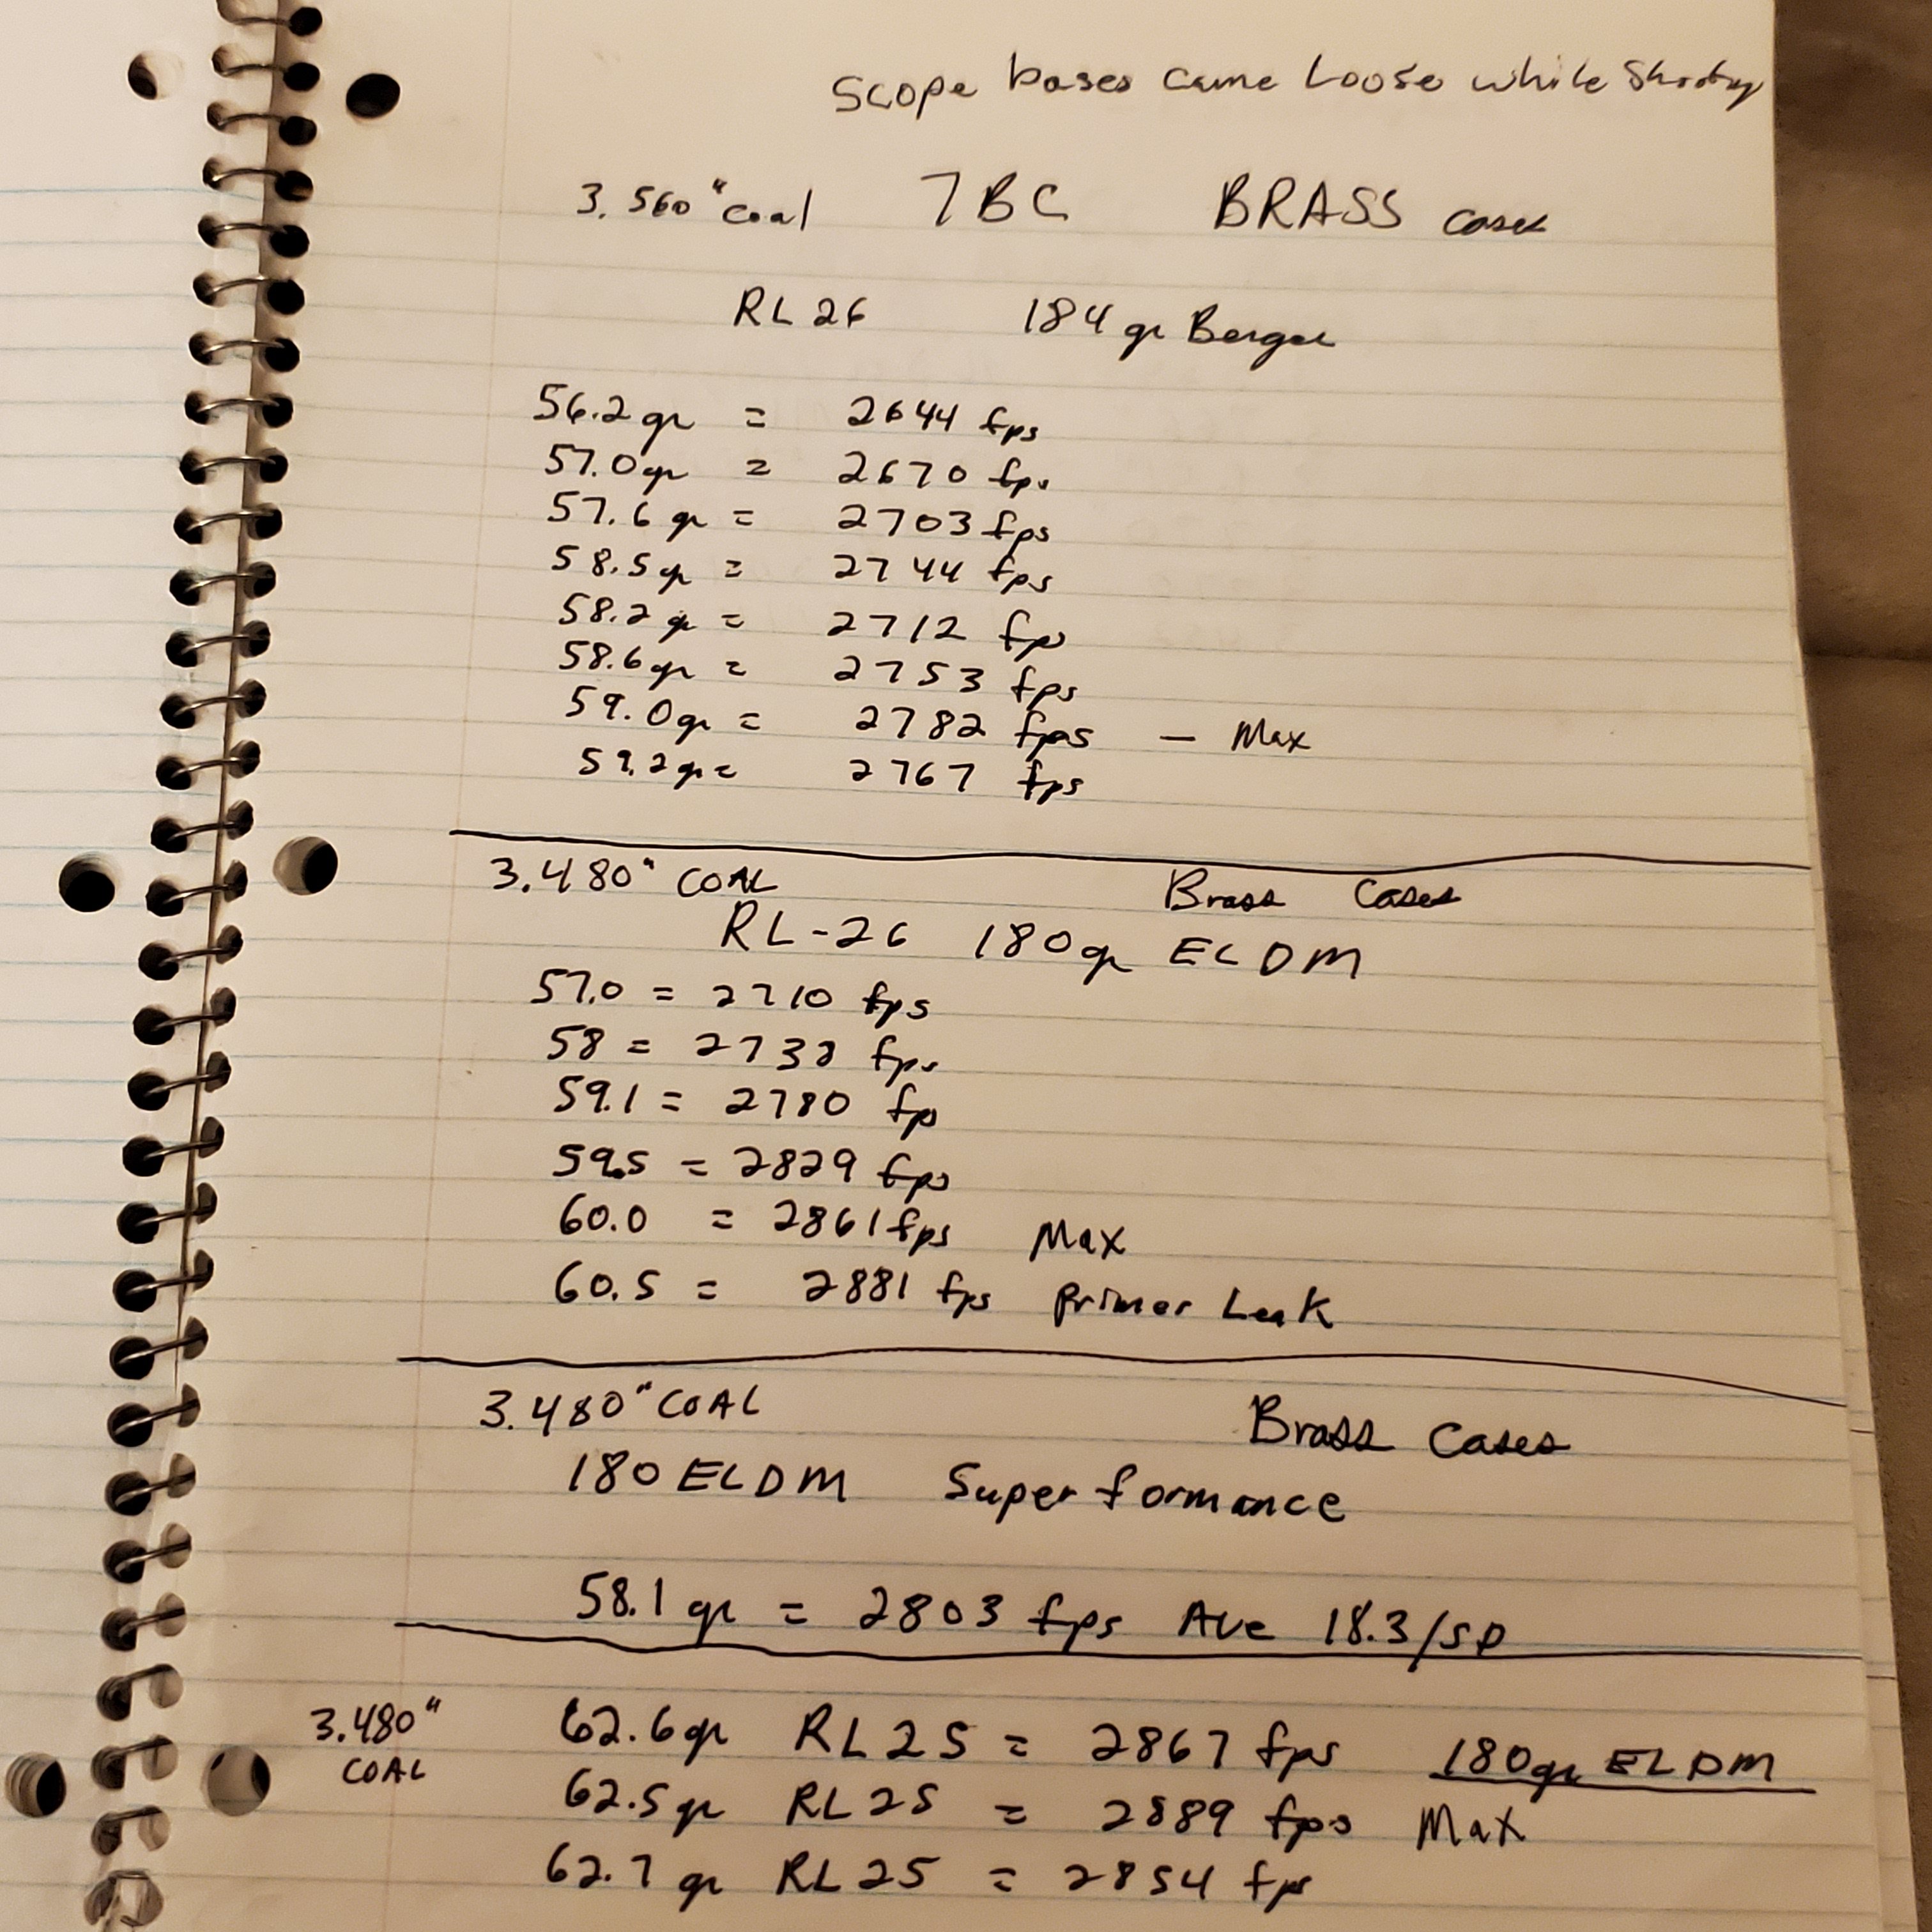 Scope bases came Loose while Shooting
3.560" Coal 7BC BRASS cases
RL26 184 gr Berger
56.2 gr = 2644 fps
57.0 gr = 2670 fps
57.6 gr = 2703 fps
58.5 gr = 2744 fps
58.2 gr = 2712 fps
58.6 gr = 2753 fps
59.0 gr = 2782 fps - Max
59.2 gr = 2767 fps
3.480" COAL Brass Cases
RL-26 180 gr ELDM
57.0 = 2710 fps
58 = 2738 fps
59.1 = 2780 fps
59.5 = 2829 fps
60.0 = 2861 fps Max
60.5 = 2881 fps Primer Leak
3.480" COAL Brass Cases
180 ELDM Superformance
58.1 gr = 2803 fps Ave 18.3/SD
3.480" COAL
62.6 gr RL25 = 2867 fps 180 gr ELDM
62.5 gr RL25 = 2889 fps Max
62.7 gr RL25 = 2854 fps